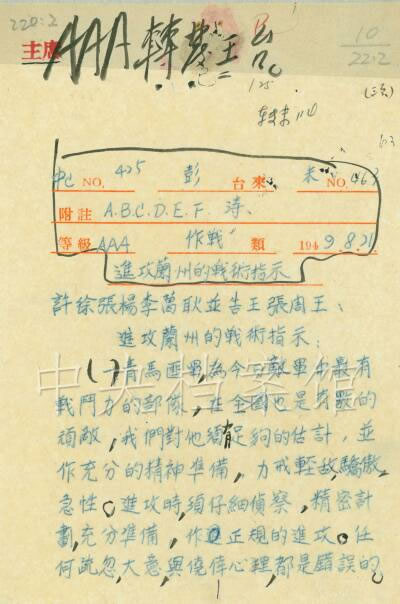 220:2
主席
AAA
10
22.2
125
63
中 NO. 425 彭 台來 未 NO. 463
附註 A.B.C.D.E.F. 涛、
等級 AAA 作戰 類 1949 8.21
進攻蘭州的戰術指示
許徐張楊李葛耿並告王張周王：
進攻蘭州的戰術指示：
(一)青馬匪軍，為今日敵軍中最有
戰鬥力的部隊，在全國也是有數的
頑敵，我們對他須有足夠的估計，並
作充分的精神準備，力戒輕敌驕傲
急性。進攻時須仔細偵察，精密計
劃，充分準備，作正規的進攻。任
何疏忽大意，與僥倖心理，都是錯誤的，
中央档案馆